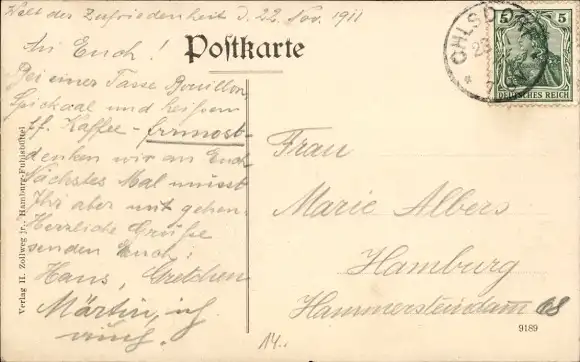 Welt der Zufriedenheit d. 22. Nov. 1911
An Euch!
Bei einer Tasse Bouillon,
Spickaal und heißem
ff. Kaffee -
denken wir an Euch
Nächstes Mal müsst
Ihr aber mit gehen.
Herzliche Grüße
senden Euch:
Hans, Gretchen
Martin, ich
auch.
Postkarte
OHLSDORF
5 5
DEUTSCHES REICH
Frau
Marie Albers
Hamburg
Hammersteindamm 68
9189
14..
Verlag H. Zollweg jr., Hamburg-Fuhlsbüttel